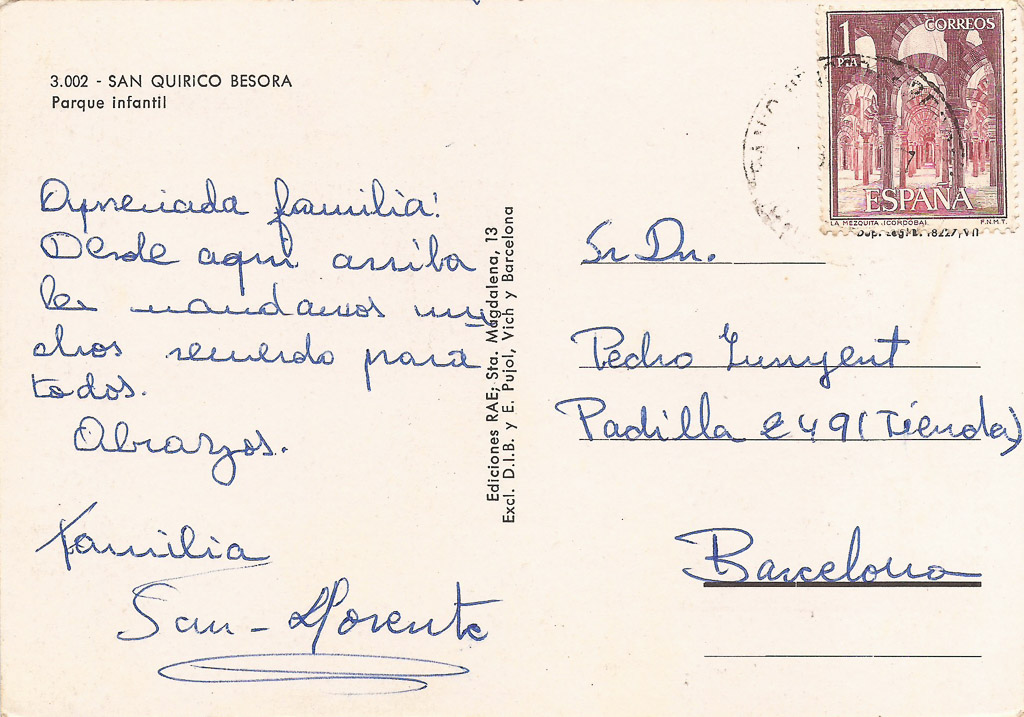 3.002 - SAN QUIRICO BESORA
Parque infantil
Apreciada familia!
Desde aqui arriba
les mandamos mu
chos recuerdo para
todos.
Abrazos.
Familia
San-Llorente
Ediciones RAE; Sta. Magdalena, 13
Excl. D.I.B. y E. Pujol, Vich y Barcelona
1 PTA
CORREOS
ESPAÑA
LA MEZQUITA (CORDOBA)
F.N.M.T.
Dep. Leg. B. 18227, VII
Sr. Dn.
Pedro Junyent
Padilla 249 (Tienda)
Barcelona